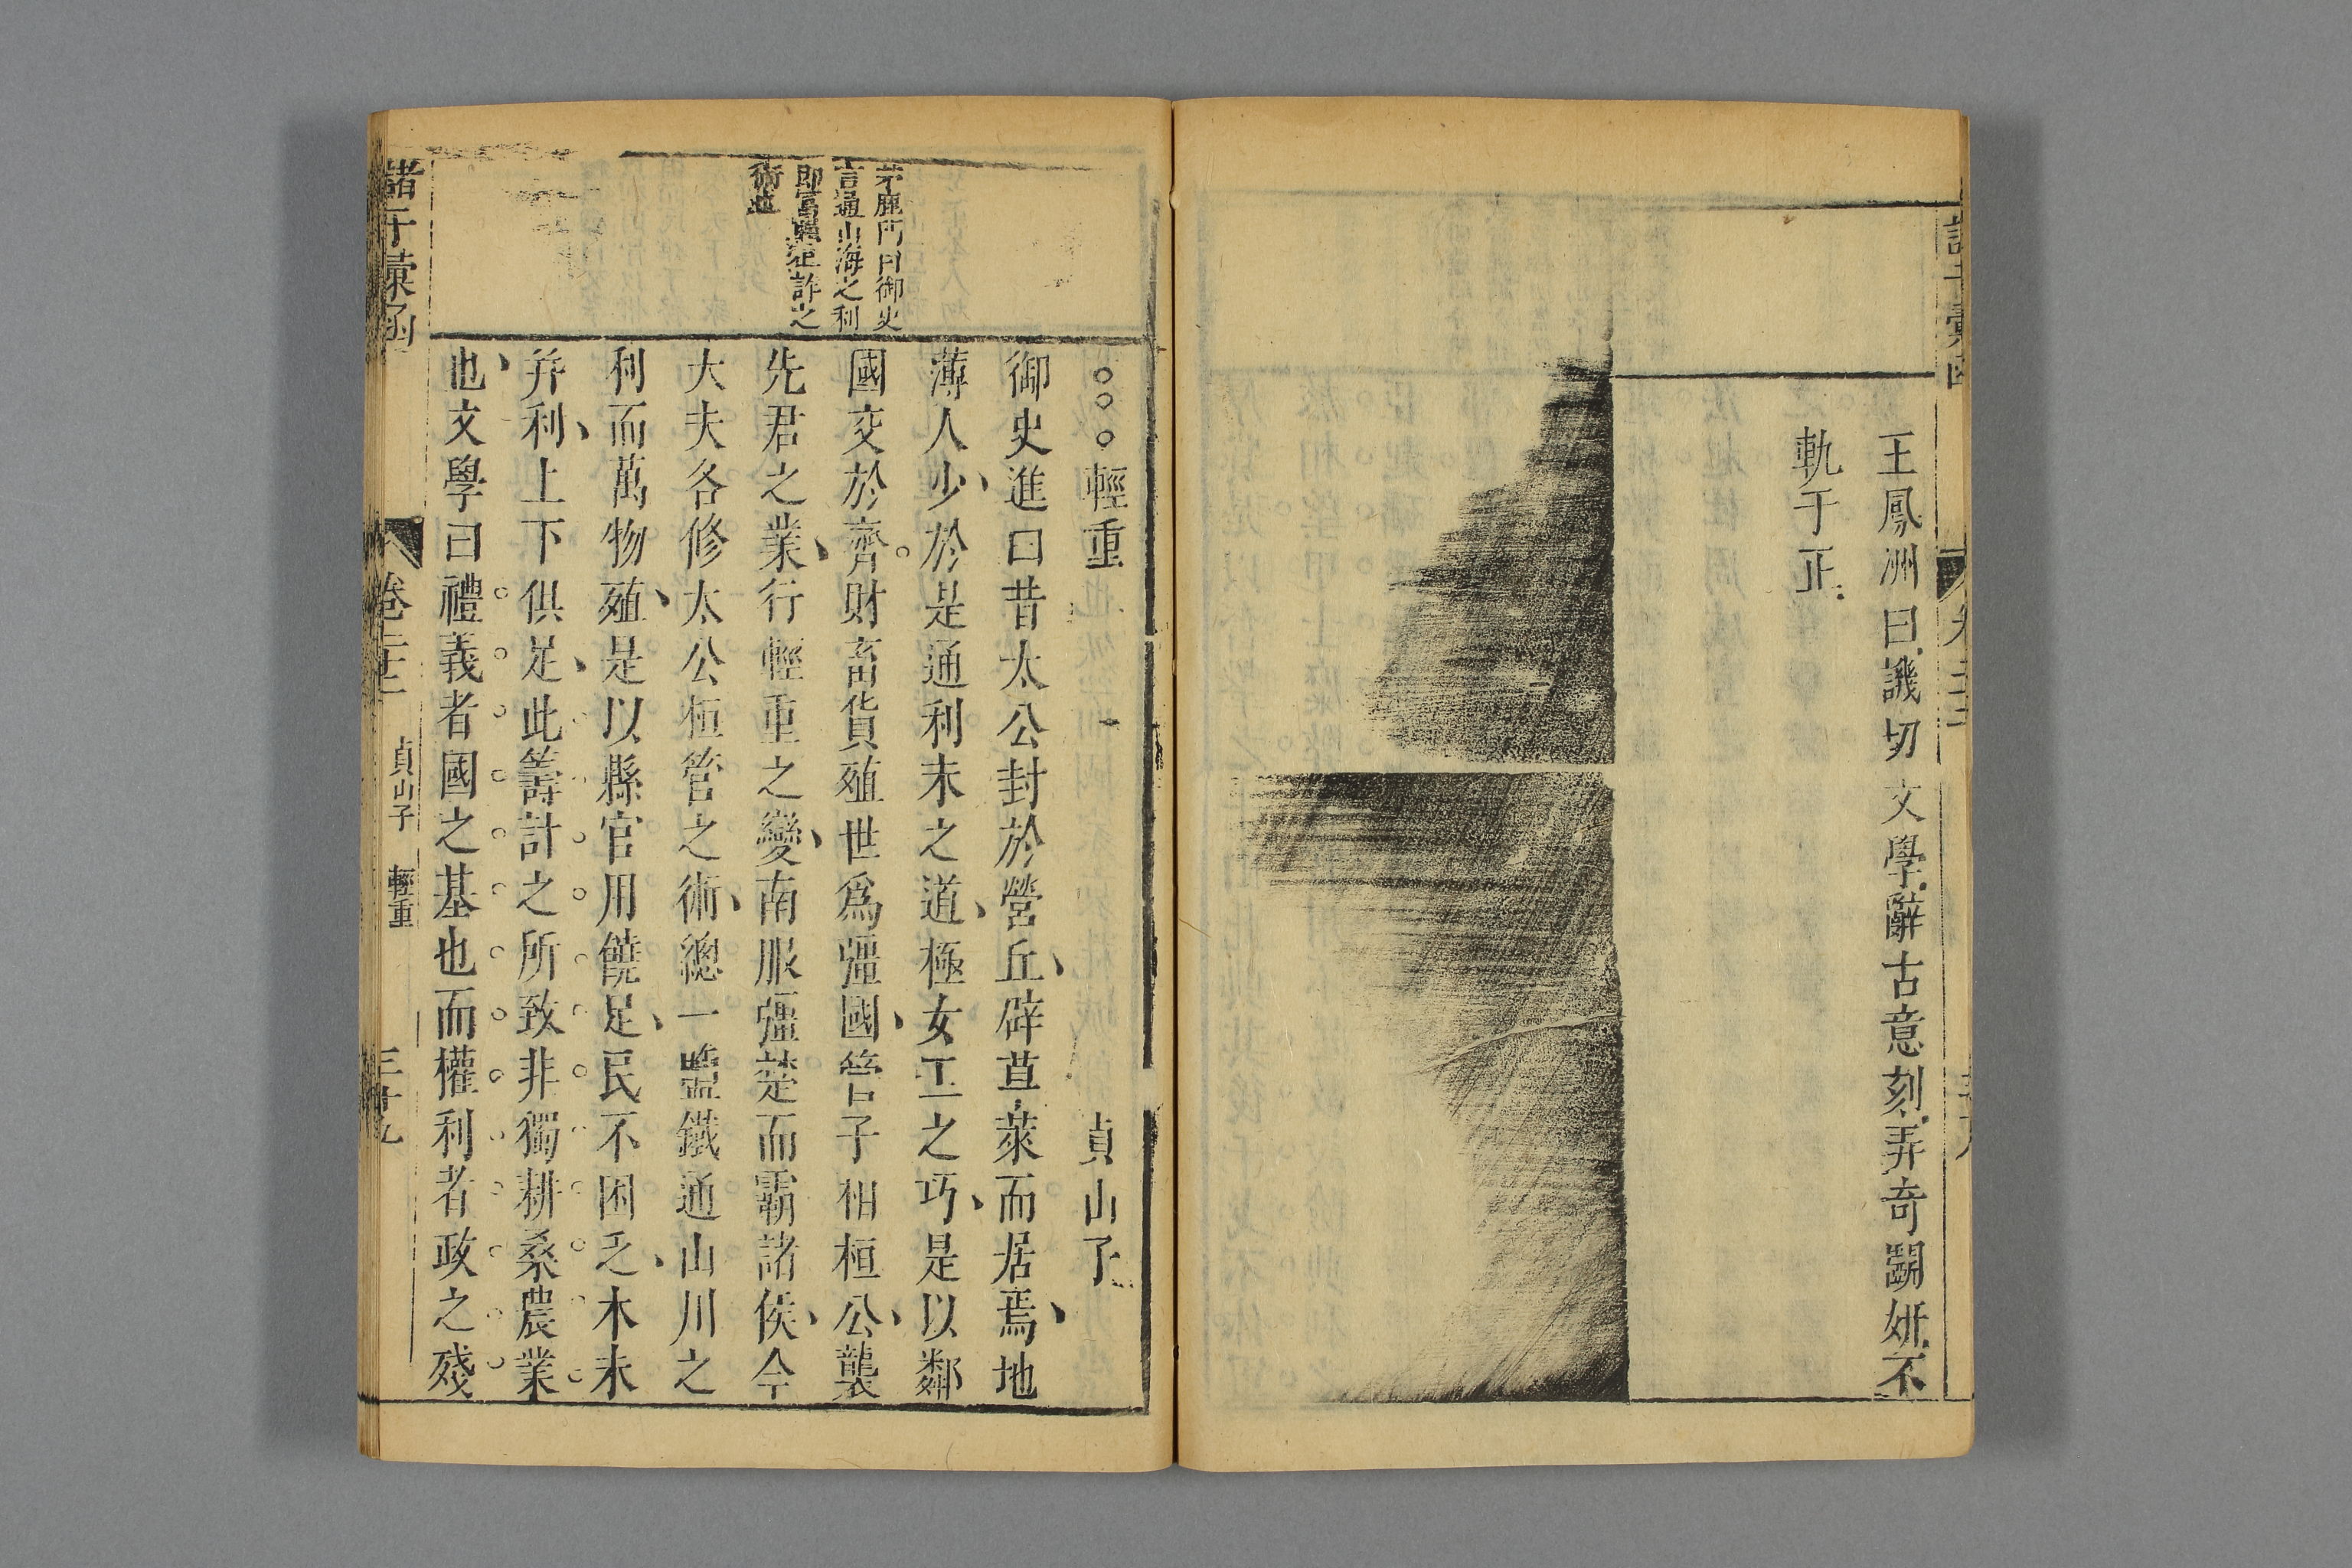 王鳳洲曰譏切文學辭古意刻弄奇鬬妍不
軌于正
茅鹿門曰御史
言通山海之利
即富強
詐之
術也
輕重 貞山子
御史進曰昔太公封於營丘辟草萊而居焉地
薄人少於是通利末之道極女工之巧是以鄰
國交於齊財畜貨殖世爲彊國管子相桓公襲
先君之業行輕重之變南服彊楚而霸諸侯今
大夫各修太公桓管之術總一鹽鐵通山川之
利而萬物殖是以縣官用饒足民不困乏木末
并利上下俱足此籌計之所致非獨耕桑農業
也文學曰禮義者國之基也而權利者政之殘
諸子彙函
卷
貞山子
輕重